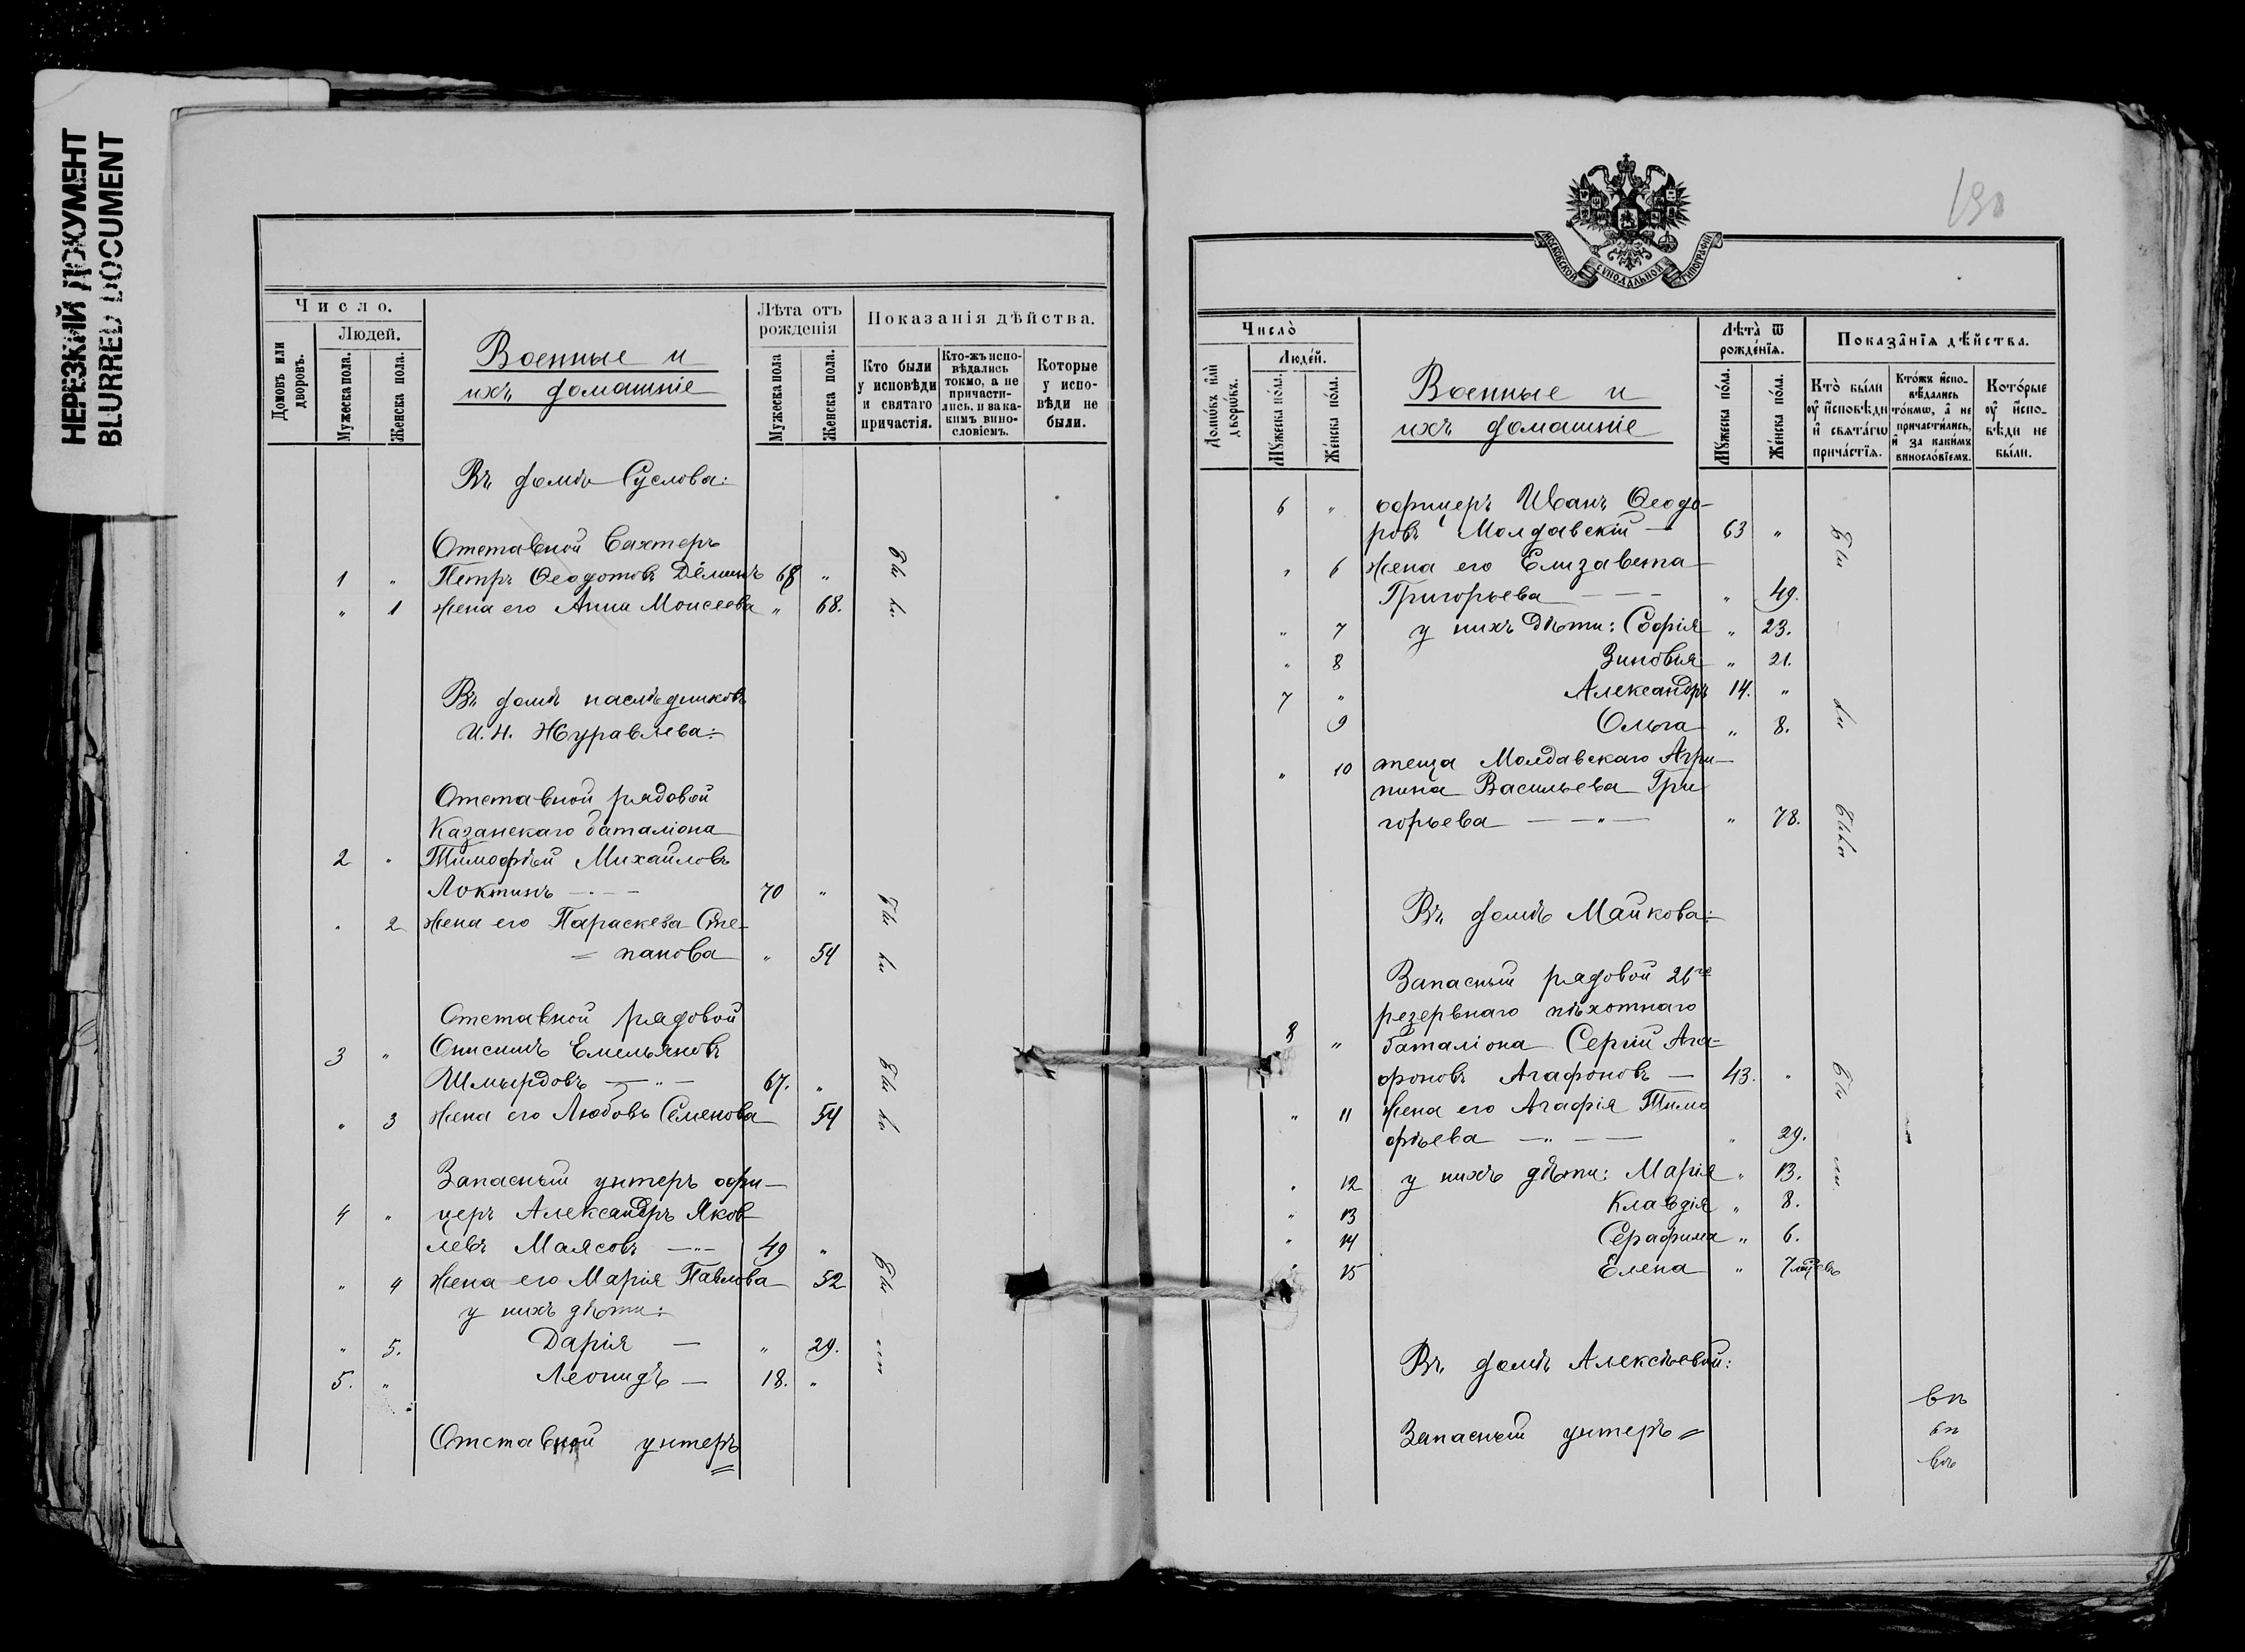 НЕРЕЗКИЙ ДОКУМЕНТ
BLURRED DOCUMENT
Число.
Домовъ или дворовъ.
Людей.
Мужеска пола.
Женска пола.
Военные и
ихъ домашніе
Лѣта отъ рожденія
Мужеска пола
Женска пола.
Показанія дѣйства.
Кто были у исповѣди и святаго причастія.
Кто-жъ исповѣдались токмо, а не причастились, и за какимъ винословіемъ.
Которые у исповѣди не были.
Въ домѣ Суслова:
Отставной вахтеръ
1 " Петръ Ѳеодотовъ Дёминъ 68 "
" 1 жена его Анна Моисеева " 68.
были
Въ домѣ наслѣдниковъ
И. Н. Журавлева:
Отставной рядовой
Казанскаго баталіона
2 " Тимофѣй Михайловъ
Локтинъ 70 "
" 2 жена его Параскева Сте-
= панова " 54
были
Отставной рядовой
3 " Онисимъ Емельяновъ
Шмырдовъ — " — 67. "
" 3 жена его Любовь Семенова 54
были
Запасный унтеръ офи-
4 " церъ Александръ Яков-
левъ Маясовъ — " — 49 "
" 4 жена его Марія Павлова 52
у нихъ дѣти:
" 5. Дарія — " 29.
5. " Леонидъ — 18. "
Отставной унтеръ
130
МОСКОВСКОЙ СѴНОДАЛЬНОЙ ТИПОГРАФІИ
Число̀
Домѡ́въ и҆лѝ дворѡ́въ.
Люде́й.
Мꙋ́жеска по́ла.
Же́нска по́ла.
Военные и
ихъ домашніе
Лѣ́та ѿ рожде́нїѧ.
Мꙋ́жеска по́ла.
Же́нска по́ла.
Показа̂нїѧ дѣ́йства.
Кто̀ бы́ли ᲂу҆ и҆сповѣ́ди и҆ свѧта́гѡ прича́стїѧ.
Кто́жъ и҆сповѣ́дались то́кмѡ, а҆ не причасти́лись, и҆ за каки́мъ виносло́вїемъ.
Кото́рые ᲂу҆ и҆сповѣ́ди не бы́ли.
6 " офицеръ Иванъ Ѳеодо-
ровъ Молдавскій — 63 "
" 6 жена его Елизавета
Григорьева — — — " 49.
" 7 у нихъ дѣти: Софія " 23.
" 8 Зиновія " 21.
7 " Александръ 14. "
9 Ольга " 8.
" 10 теща Молдавскаго Агри-
пина Васильева Гри
горьева — " — " 78.
Въ домѣ Майкова:
Запасный рядовой 26го
резервнаго пѣхотнаго
8 " баталіона Сергій Ага=
фоновъ Агафоновъ — 43. "
" 11 жена его Агафія Тимо
фѣева — " — — " 29.
" 12 у нихъ дѣти: Марія " 13.
" 13 Клавдія " 8.
" 14 Серафима " 6.
" 15 Елена " 7 мѣсцевъ
Въ домѣ Алексѣевой:
Запасный унтеръ=